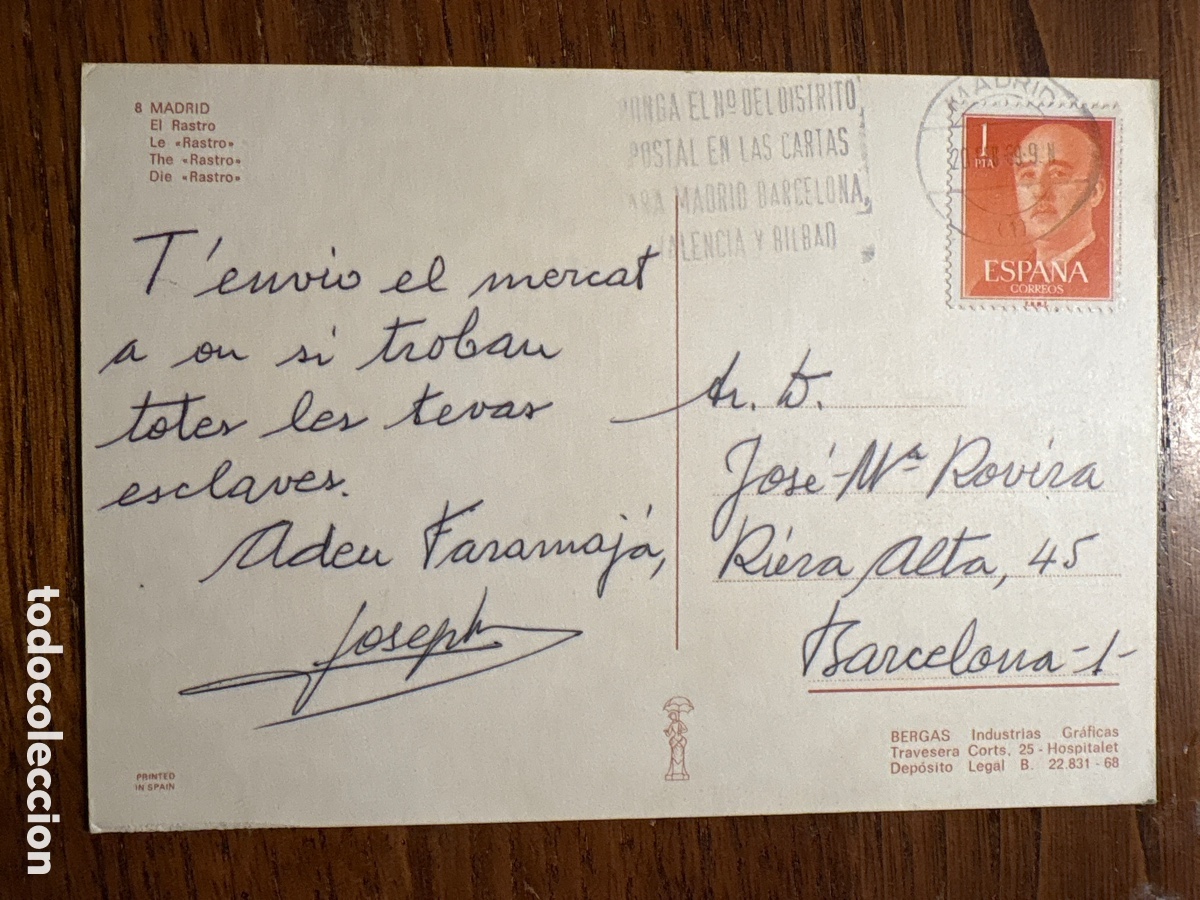 8 MADRID
El Rastro
Le «Rastro»
The «Rastro»
Die «Rastro»
PONGA EL Nº DEL DISTRITO
POSTAL EN LAS CARTAS
PARA MADRID BARCELONA,
VALENCIA Y BILBAO
MADRID
(1)
1
PTA
ESPAÑA
CORREOS
T'envio el mercat
a on si troban
totes les tevas
esclaves.
Adeu Faramajá,
Joseph
Sr. D.
José-Mª Rovira
Riera Alta, 45
Barcelona-1-
BERGAS Industrias Gráficas
Travesera Corts, 25 - Hospitalet
Depósito Legal B. 22.831 - 68
PRINTED
IN SPAIN
todocoleccion